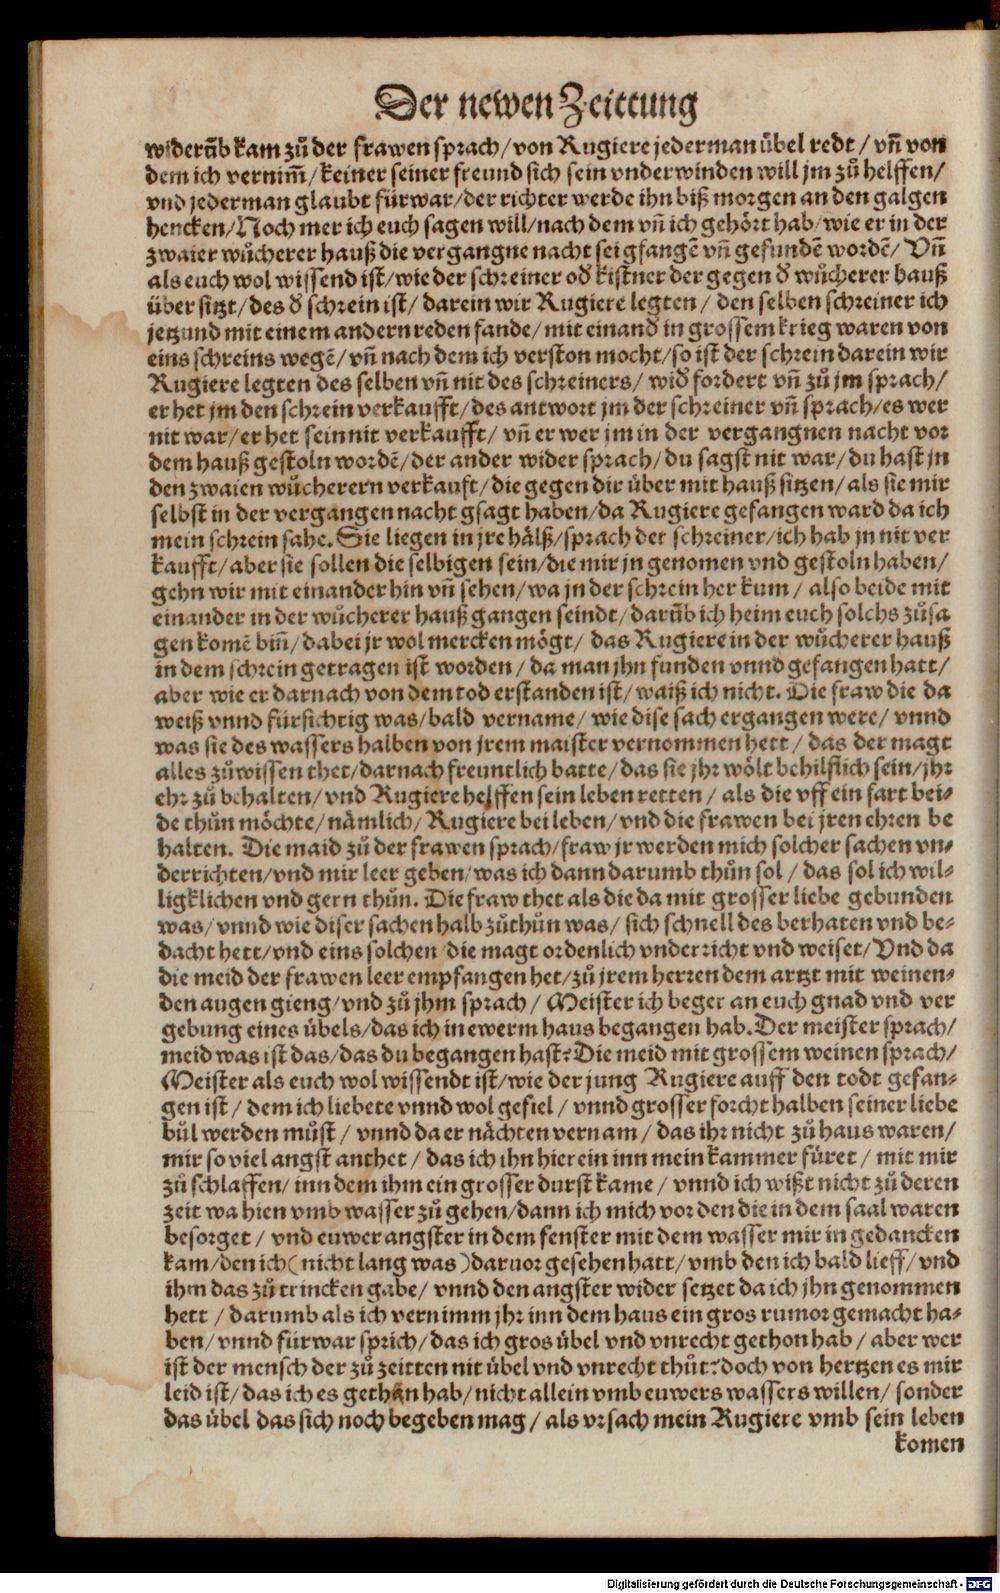 Der newen Zeittung
widerūb kam zů der frawen sprach/von Rugiere jederman übel redt / vñ von
dem ich vernim̃/keiner seiner freund sich sein vnderwinden will jm zů helffen/
vnd jederman glaubt fürwar/der richter werde ihn biß morgen an den galgen
hencken/Noch mer ich euch sagen will/nach dem vñ ich gehört hab/wie er in der
zwaier wůcherer hauß die vergangne nacht sei gfangē vñ gefundē wordē/ Vñ
als euch wol wissend ist/wie der schreiner od̄ kistner der gegen d̄ wůcherer hauß
über sitzt/des d̄ schrein ist/ darein wir Rugiere legten / den selben schreiner ich
jetzund mit einem andern reden fande/mit einand̄ in grossem krieg waren von
eins schreins wegē/vñ nach dem ich verston mocht/so ist der schrein darein wir
Rugiere legten des selben vñ nit des schreiners/ wid̄ fordert vñ zů jm sprach/
er het jm den schrein verkaufft/des antwort jm der schreiner vñ sprach/es wer
nit war/er het sein nit verkaufft/ vñ er wer jm in der vergangnen nacht vor
dem hauß gestoln wordē/der ander wider sprach/du sagst nit war/du hast jn
den zwaien wůcherern verkauft/die gegen dir über mit hauß sitzen/als sie mir
selbst in der vergangen nacht gsagt haben/da Rugiere gefangen ward da ich
mein schrein sahe. Sie liegen in jre hälß/sprach der schreiner/ich hab jn nit ver
kaufft/aber sie sollen die selbigen sein/die mir jn genomen vnd gestoln haben/
gehn wir mit einander hin vñ sehen/wa jn der schrein her kum / also beide mit
einander in der wůcherer hauß gangen seindt/darūb ich heim euch solchs zůsa
gen komē bin̄/dabei jr wol mercken mögt/ das Rugiere in der wůcherer hauß
in dem schrein getragen ist worden/da man jhn funden vnnd gefangen hatt/
aber wie er darnach von dem tod erstanden ist/waiß ich nicht. Die fraw die da
weiß vnnd fürsichtig was/bald vername/ wie dise sach ergangen were/ vnnd
was sie des wassers halben von jrem maister vernommen hett / das der magt
alles zůwissen thet/darnach freuntlich batte/das sie jhr wölt behilflich sein/jhr
ehr zů behalten/vnd Rugiere helffen sein leben retten / als die vff ein fart bei⸗
de thůn möchte/nämlich/Rugiere bei leben/vnd die frawen bei jren ehren be
halten. Die maid zů der frawen sprach/fraw jr werden mich solcher sachen vn⸗
derrichten/vnd mir leer geben/was ich dann darumb thůn sol / das sol ich wil⸗
ligklichen vnd gern thůn. Die fraw thet als die da mit grosser liebe gebunden
was/vnnd wie diser sachen halb zůthůn was/ sich schnell des berhaten vnd be⸗
dacht hett/vnd eins solchen die magt ordenlich vnderricht vnd weiset/Vnd da
die meid der frawen leer empfangen het/zů jrem herren dem artzt mit weinen⸗
den augen gieng/vnd zů jhm sprach / Meister ich beger an euch gnad vnd ver
gebung eines übels/das ich in ewerm haus begangen hab. Der meister sprach/
meid was ist das/das du begangen hast? Die meid mit grossem weinen sprach/
Meister als euch wol wissendt ist/wie der jung Rugiere auff den todt gefan⸗
gen ist / dem ich liebete vnnd wol gefiel / vnnd grosser forcht halben seiner liebe
bůl werden můst / vnnd da er nächten vernam / das ihr nicht zů haus waren/
mir so viel angst anthet / das ich ihn hierein inn mein kammer füret / mit mir
zů schlaffen/ inn dem ihm ein grosser durst kame / vnnd ich wißt nicht zů deren
zeit wa hien vmb wasser zů gehen/dann ich mich vor den die in dem saal waren
besorget / vnd euwer angster in dem fenster mit dem wasser mir in gedancken
kam/den ich (nicht lang was) daruor gesehen hatt/vmb den ich bald lieff/vnd
ihm das zů trincken gabe/ vnnd den angster wider setzet da ich jhn genommen
hett / darumb als ich vernimm jhr inn dem haus ein gros rumor gemacht ha⸗
ben/vnnd fürwar sprich/das ich gros übel vnd vnrecht gethon hab / aber wer
ist der mensch der zů zeitten nit übel vnd vnrecht thůt? doch von hertzen es mir
leid ist/das ich es gethan hab/nicht allein vmb euwers wassers willen/ sonder
das übel das sich noch begeben mag / als vrsach mein Rugiere vmb sein leben
komen
Digitalisierung gefördert durch die Deutsche Forschungsgemeinschaft - DFG